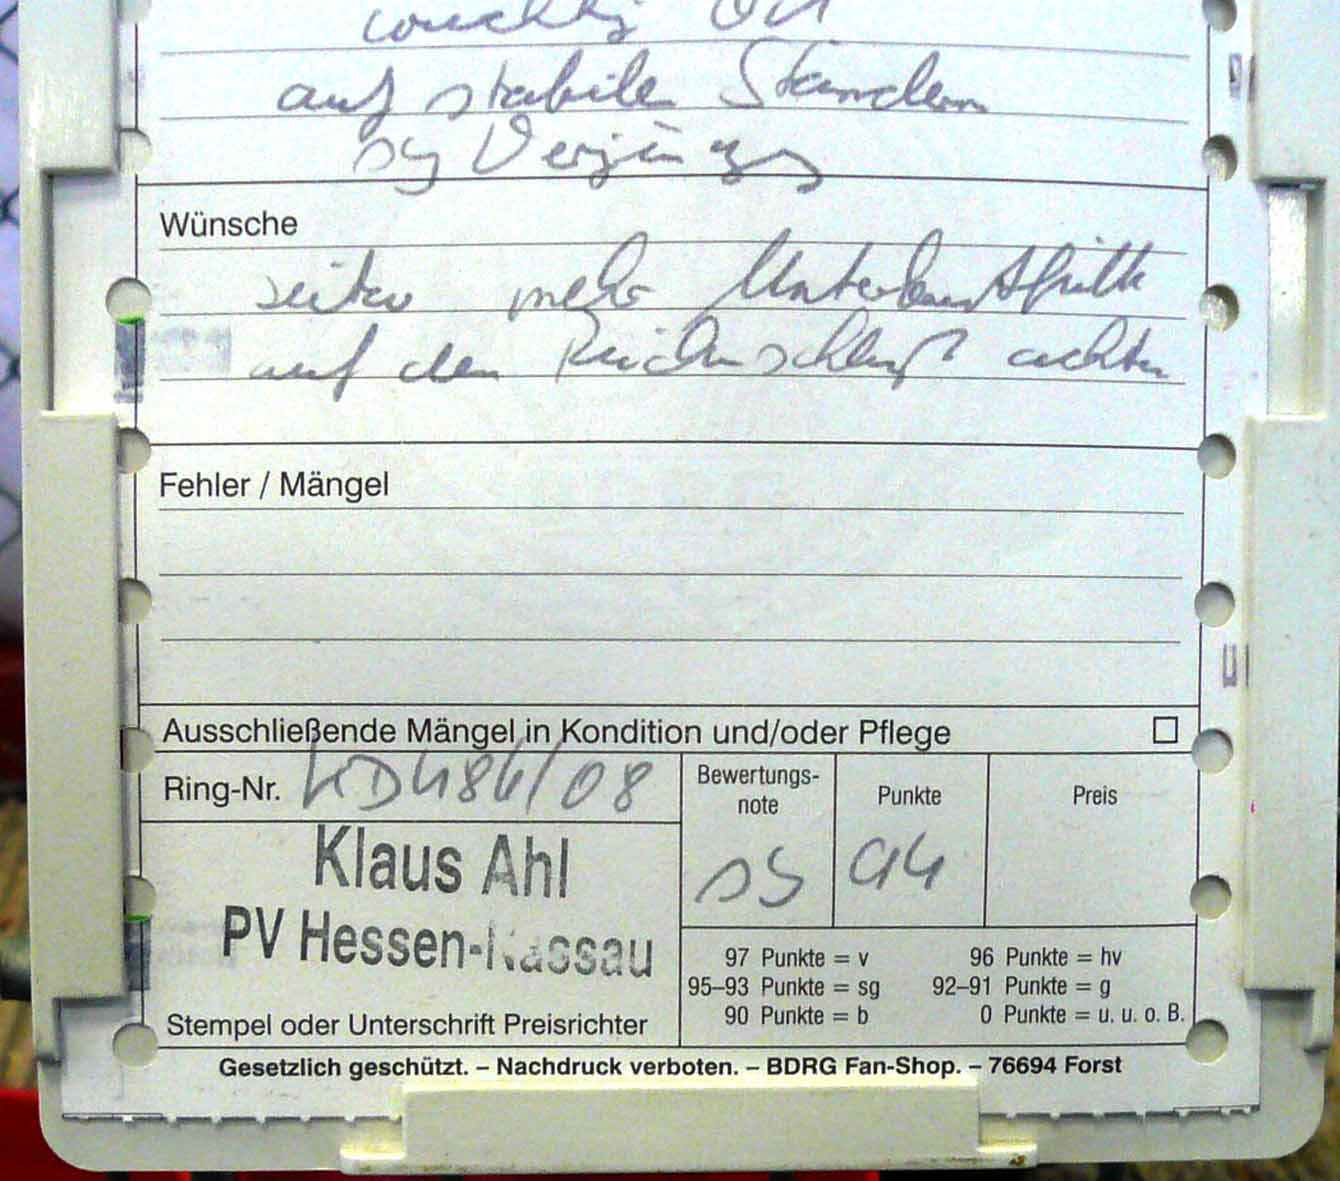 wuchtig
auf stabilen Ständern
sg Verjüngung
Wünsche
seitw mehr Unterbrustfülle
auf den Rückenschluß achten
Fehler / Mängel
Ausschließende Mängel in Kondition und/oder Pflege
Ring-Nr. KD484/08
Bewertungs-
note
Punkte
Preis
sg
94
Klaus Ahl
PV Hessen-Nassau
Stempel oder Unterschrift Preisrichter
97 Punkte = v 96 Punkte = hv
95–93 Punkte = sg 92–91 Punkte = g
90 Punkte = b 0 Punkte = u. u. o. B.
Gesetzlich geschützt. – Nachdruck verboten. – BDRG Fan-Shop. – 76694 Forst